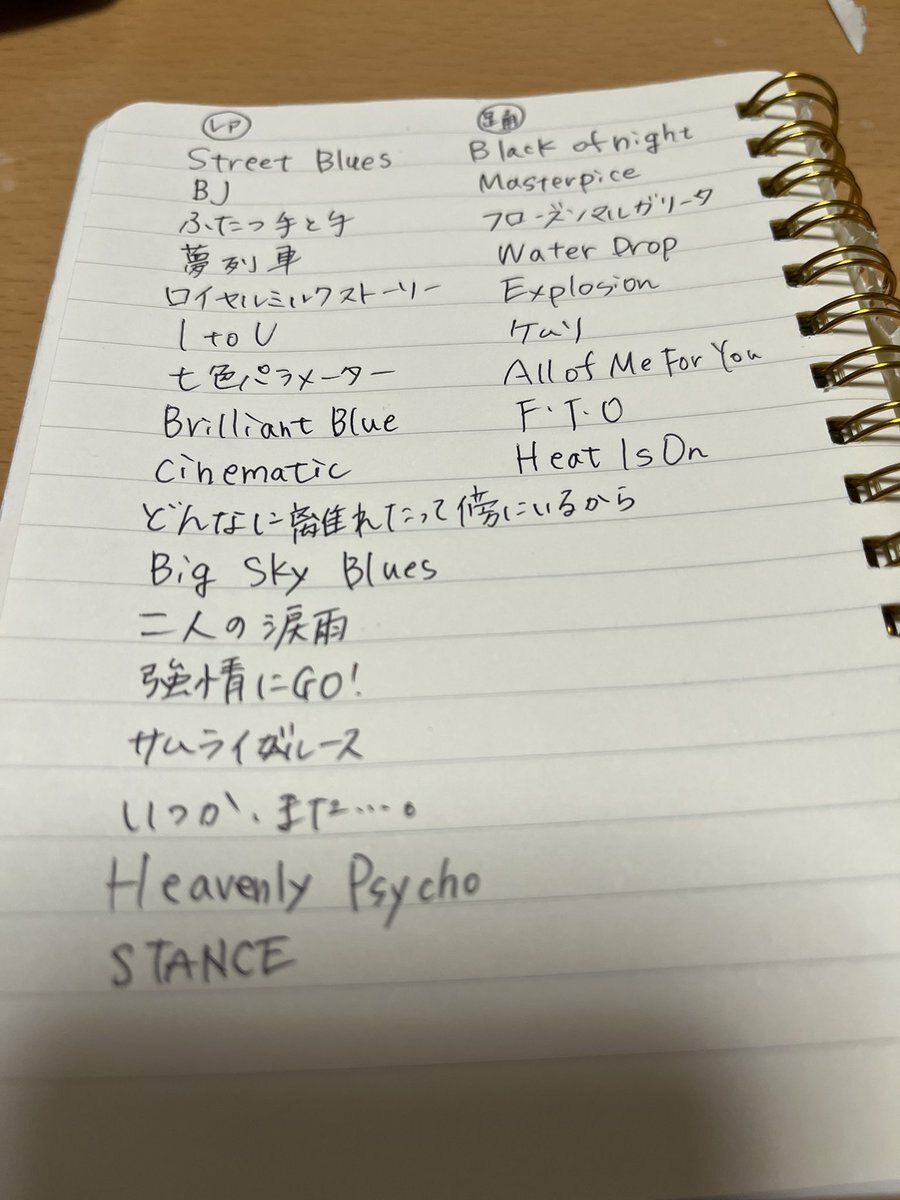 レア
Street Blues
BJ
ふたつ手と手
夢列車
ロイヤルミルクストーリー
I to U
七色パラメーター
Brilliant Blue
Cinematic
どんなに離れたって傍にいるから
Big Sky Blues
二人の涙雨
強情にGO!
サムライガルース
いつか、また…。
Heavenly Psycho
STANCE
Black of night
Masterpice
フローズンマルガリータ
Water Drop
Explosion
ケムリ
All of Me For You
F・T・O
Heat Is On